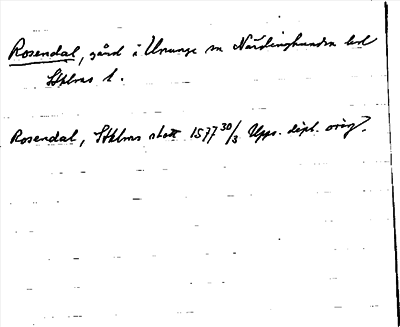 Rosendal, gård i Ununge sn Närdinghundra hd
Sthlms l.
Rosendal, Sthlms slott 1577 30/3 Upps. dipl. orig.